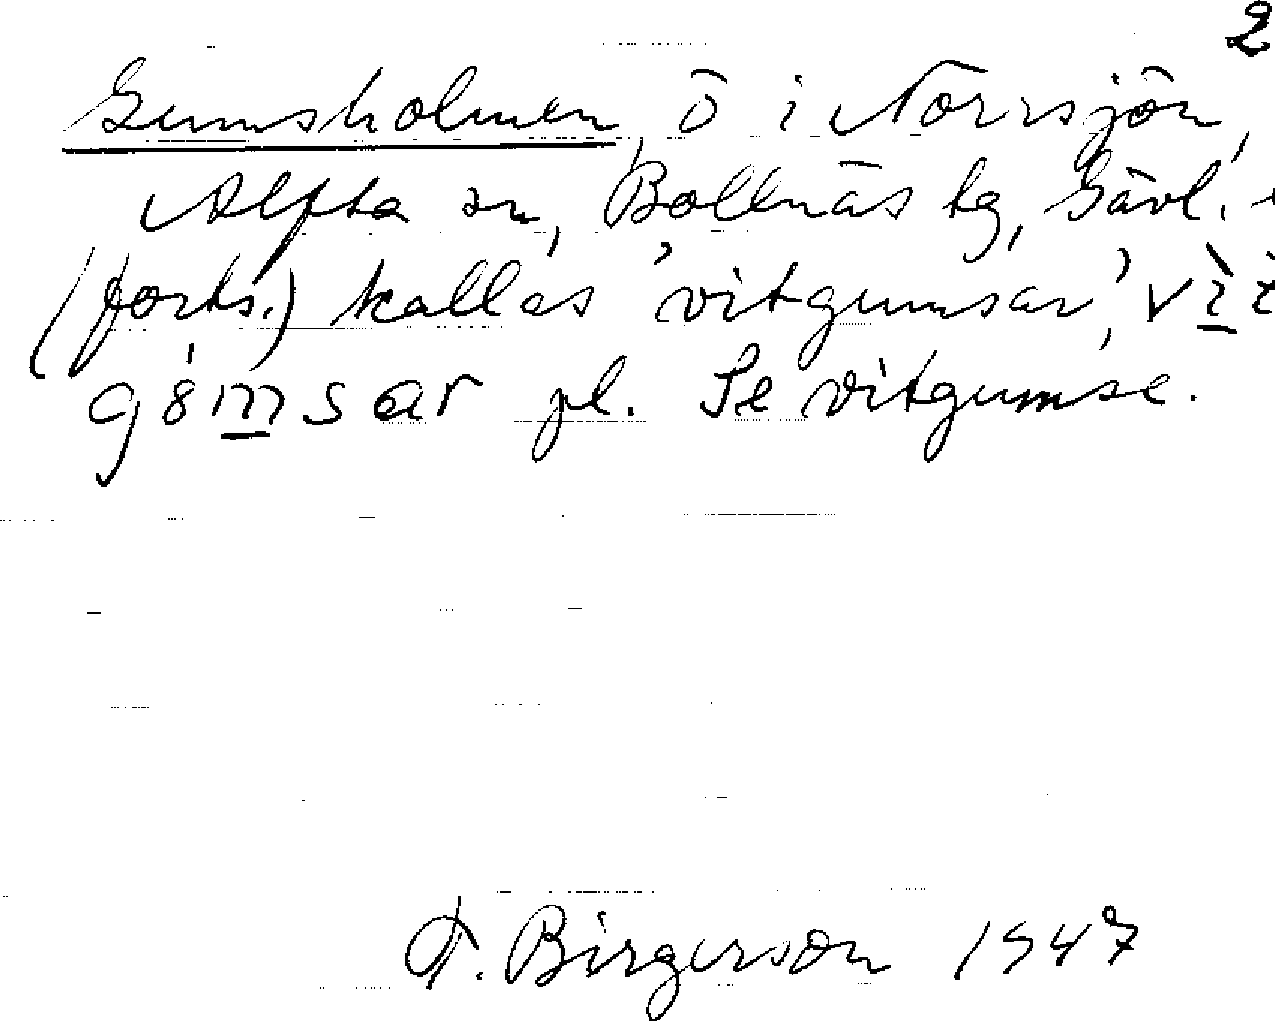 2
Gumsholmen, ö i Norrsjön,
Alfta sn, Bollnäs tg, Gävl.
(forts.) kallas 'vitgumsar',
pl. Se vitgumse.
F. Birgerson 1947